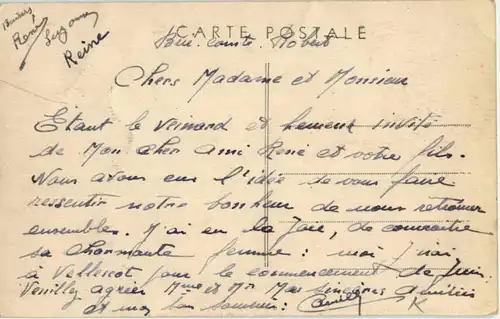 René
Suzanne
Reine
CARTE POSTALE
Brie-Comte-Robert
Chers Madame et Monsieur
Étant le Veinard et heureux invité
de Mon cher ami René et votre fils.
Nous avons eu l'idée de vous faire
ressentir notre bonheur de nous retrouver
ensembles. J'ai eu la Joie, de connaître
sa charmante femme : moi J'irai
à Vellescot pour le commencement de Juin.
Veuillez agréer Mme et Mr Mes sincères amitiés
et mon bon souvenir :